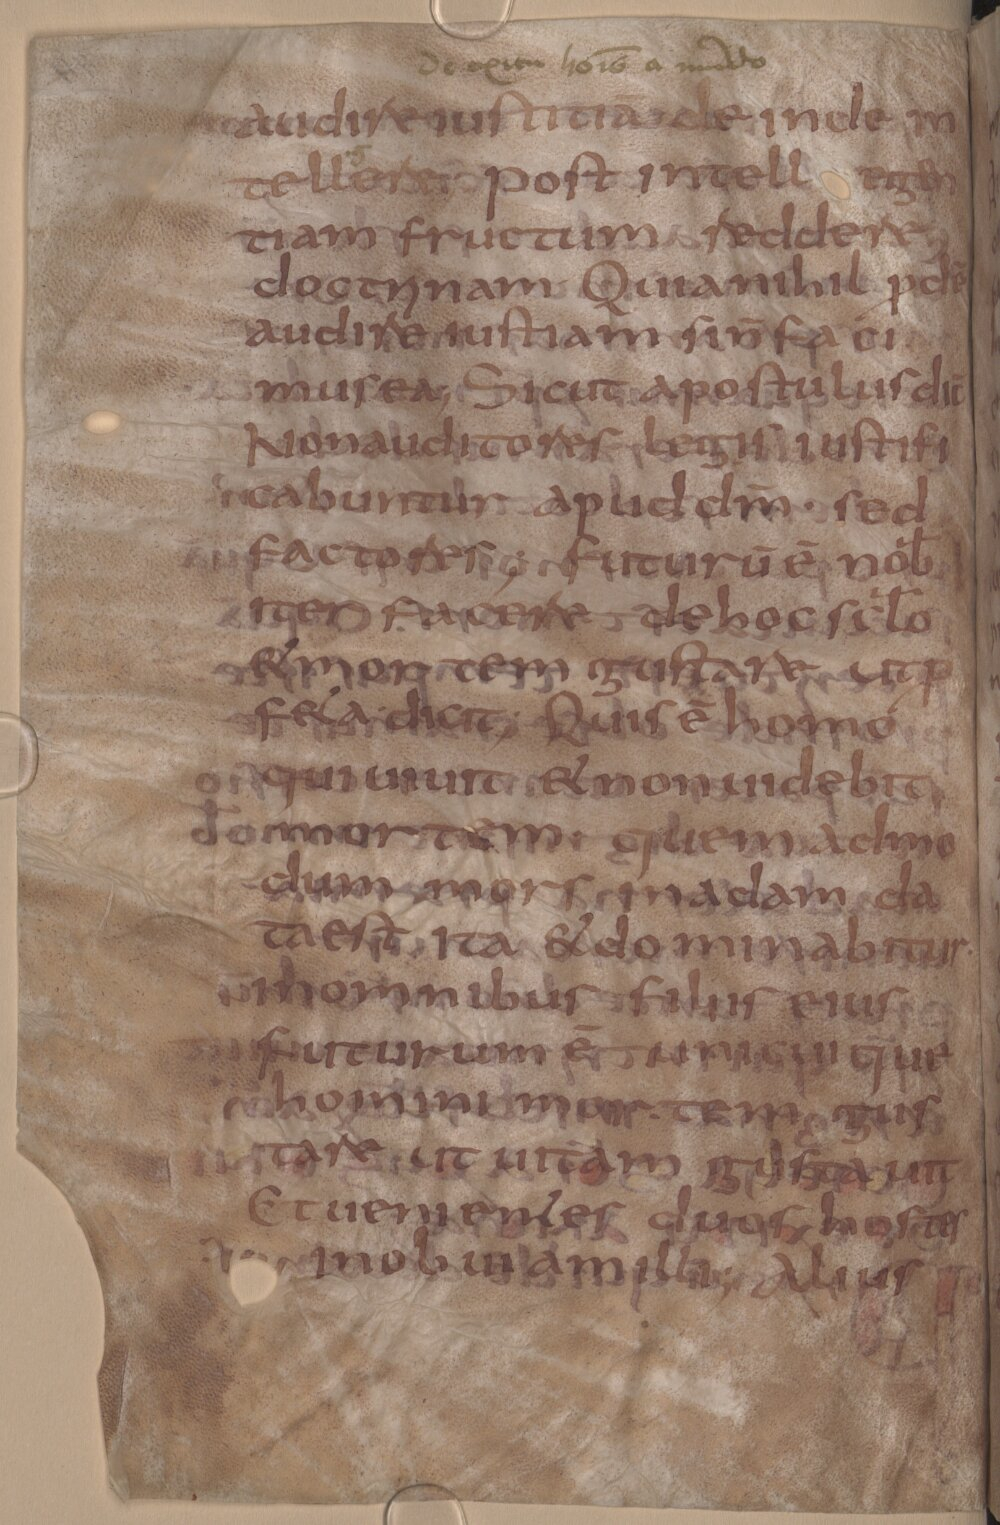 De exitu hoīs a mūdo
audire iustitiā de inde in
tellere post intell egen
tiam fructum reddere
doctrinam Quia nihil pdē
audire iustiam sin̄ faci
mus ea; Sicut apostulus dic̄
Non auditores legis iustifi
cabuntur apud dm̄ · sed
factores; futurū ē nob̄
iter facere de hoc sc̄lo
& mortem gustare ut p
f&a dicit; Quis ē homo
qui uiuit & non uidebit
mortem · quem admo
dum mors in adam da
ta est ita & dominabitur·
in omnibus filiis eius
futurum ē unicuique
homini mortem gus
tare ut uitam gustauit
Et uenientes duos hostes
in obuiam illi; Alius